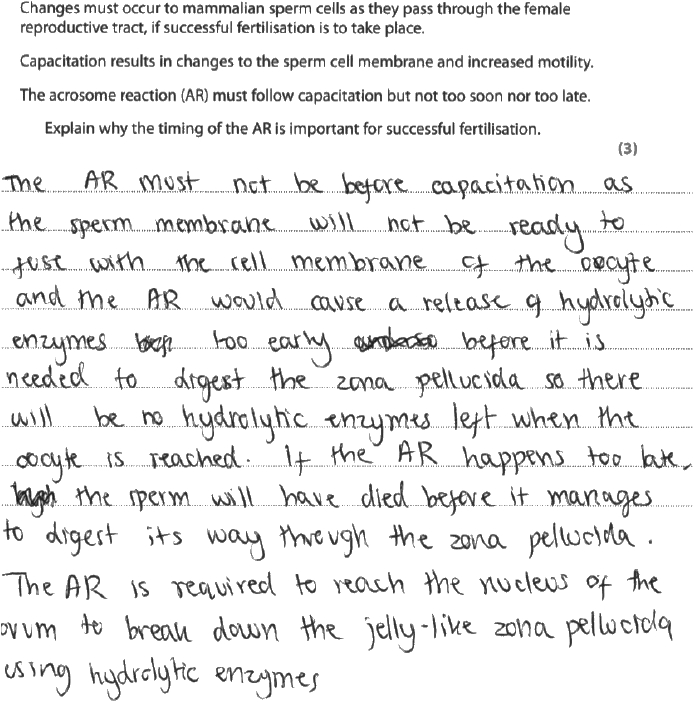 Changes must occur to mammalian sperm cells as they pass through the female
reproductive tract, if successful fertilisation is to take place.
Capacitation results in changes to the sperm cell membrane and increased motility.
The acrosome reaction (AR) must follow capacitation but not too soon nor too late.
Explain why the timing of the AR is important for successful fertilisation.
(3)
The AR must not be before capacitation as
the sperm membrane will not be ready to
fuse with the cell membrane of the oocyte
and the AR would cause a release of hydrolytic
enzymes too early before it is
needed to digest the zona pellucida so there
will be no hydrolytic enzymes left when the
oocyte is reached. If the AR happens too late,
the sperm will have died before it manages
to digest its way through the zona pellucida.
The AR is required to reach the nucleus of the
ovum to break down the jelly-like zona pellucida
using hydrolytic enzymes